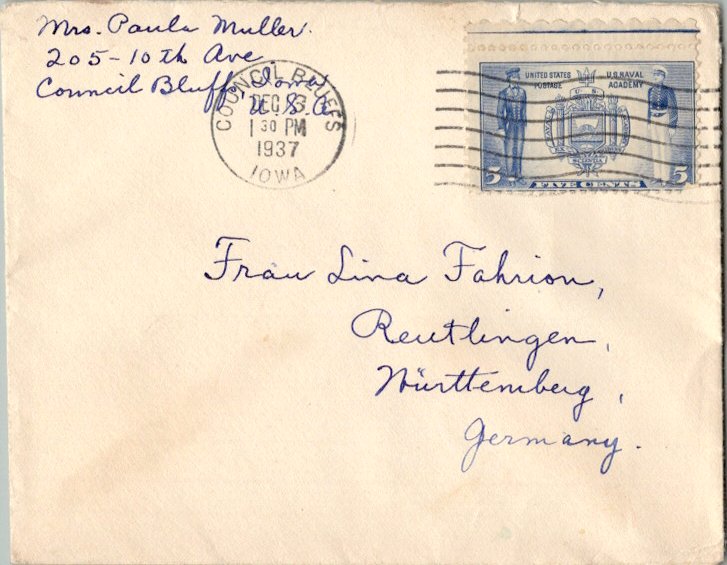 Mrs. Paula Muller.
205-10th Ave
Council Bluffs, Iowa
U.S.A.
COUNCIL BLUFFS
DEC 3
1 30 PM
1937
IOWA
UNITED STATES POSTAGE
U.S. NAVAL ACADEMY
U S
5 FIVE CENTS 5
Frau Lina Fahrion,
Reutlingen,
Württemberg,
Germany.